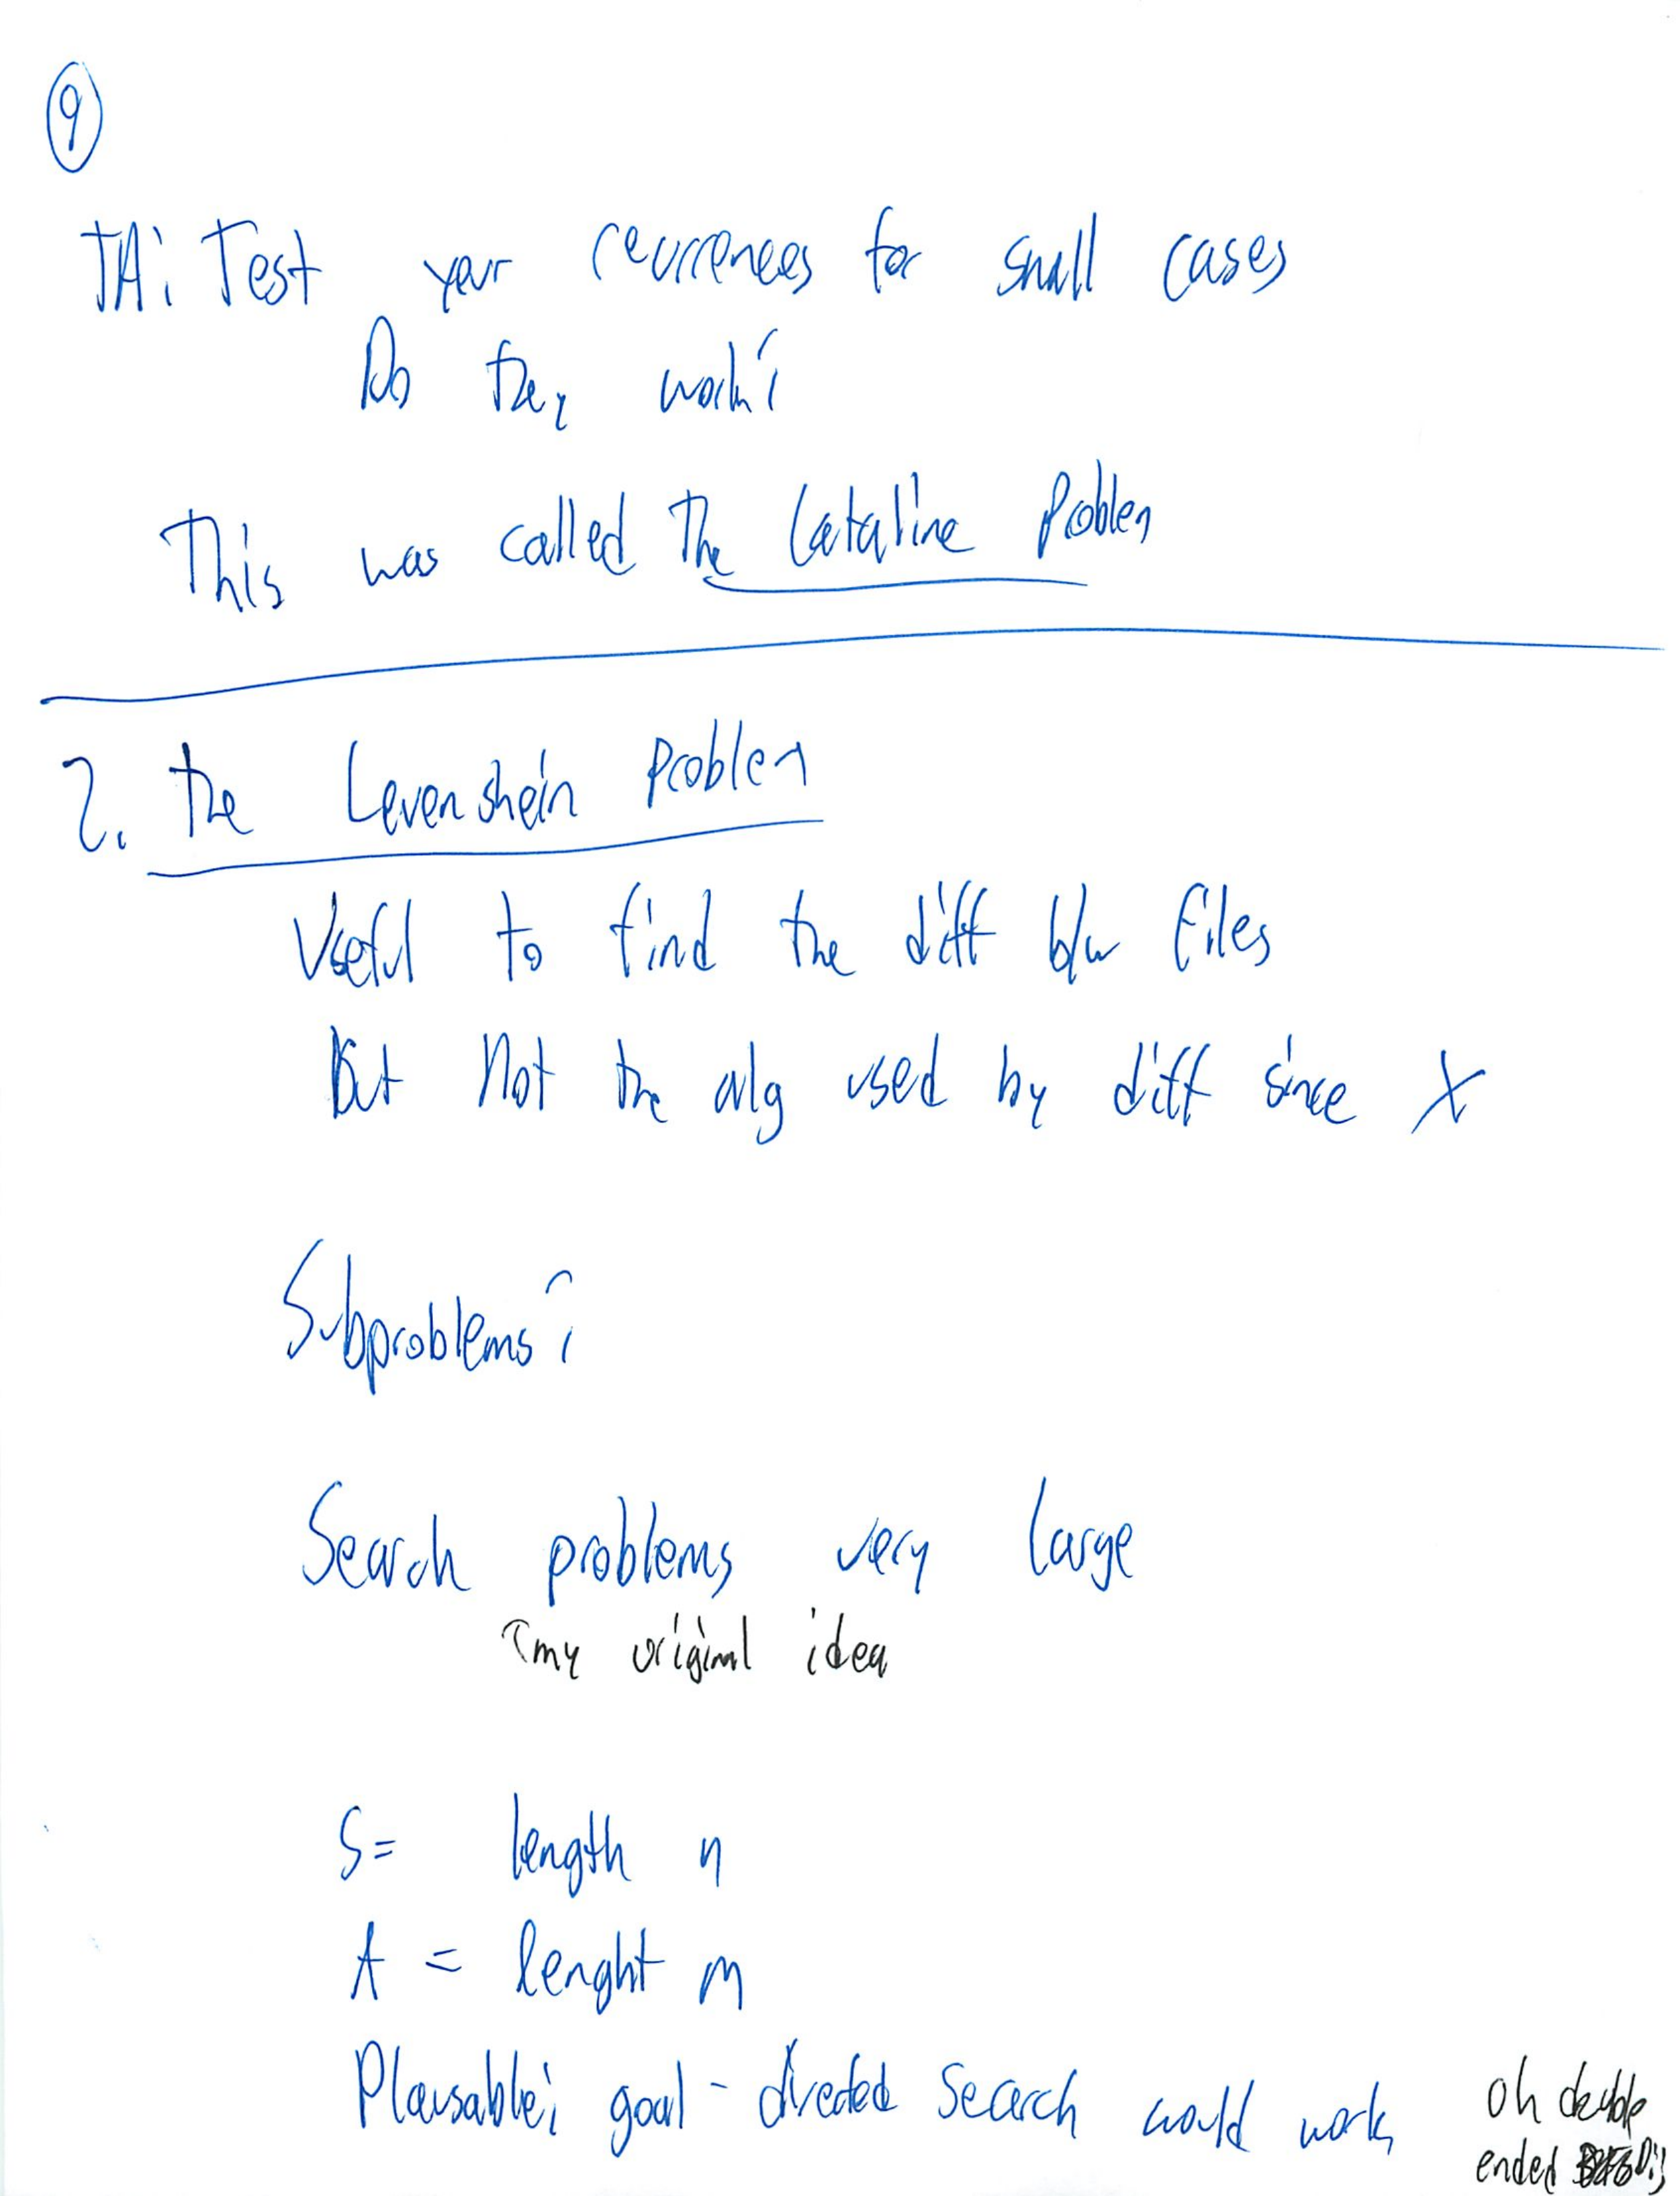 9
TA: Test your recurrences for small cases
Do they work?
This was called The Cataline Problem
2. The Levenshein Problem
Useful to find the diff b/w files
But Not the alg used by diff since X
Subproblems?
Search problems very large
my original idea
S= length n
A = lenght m
Plausable: goal-directed search would work
oh double
ended